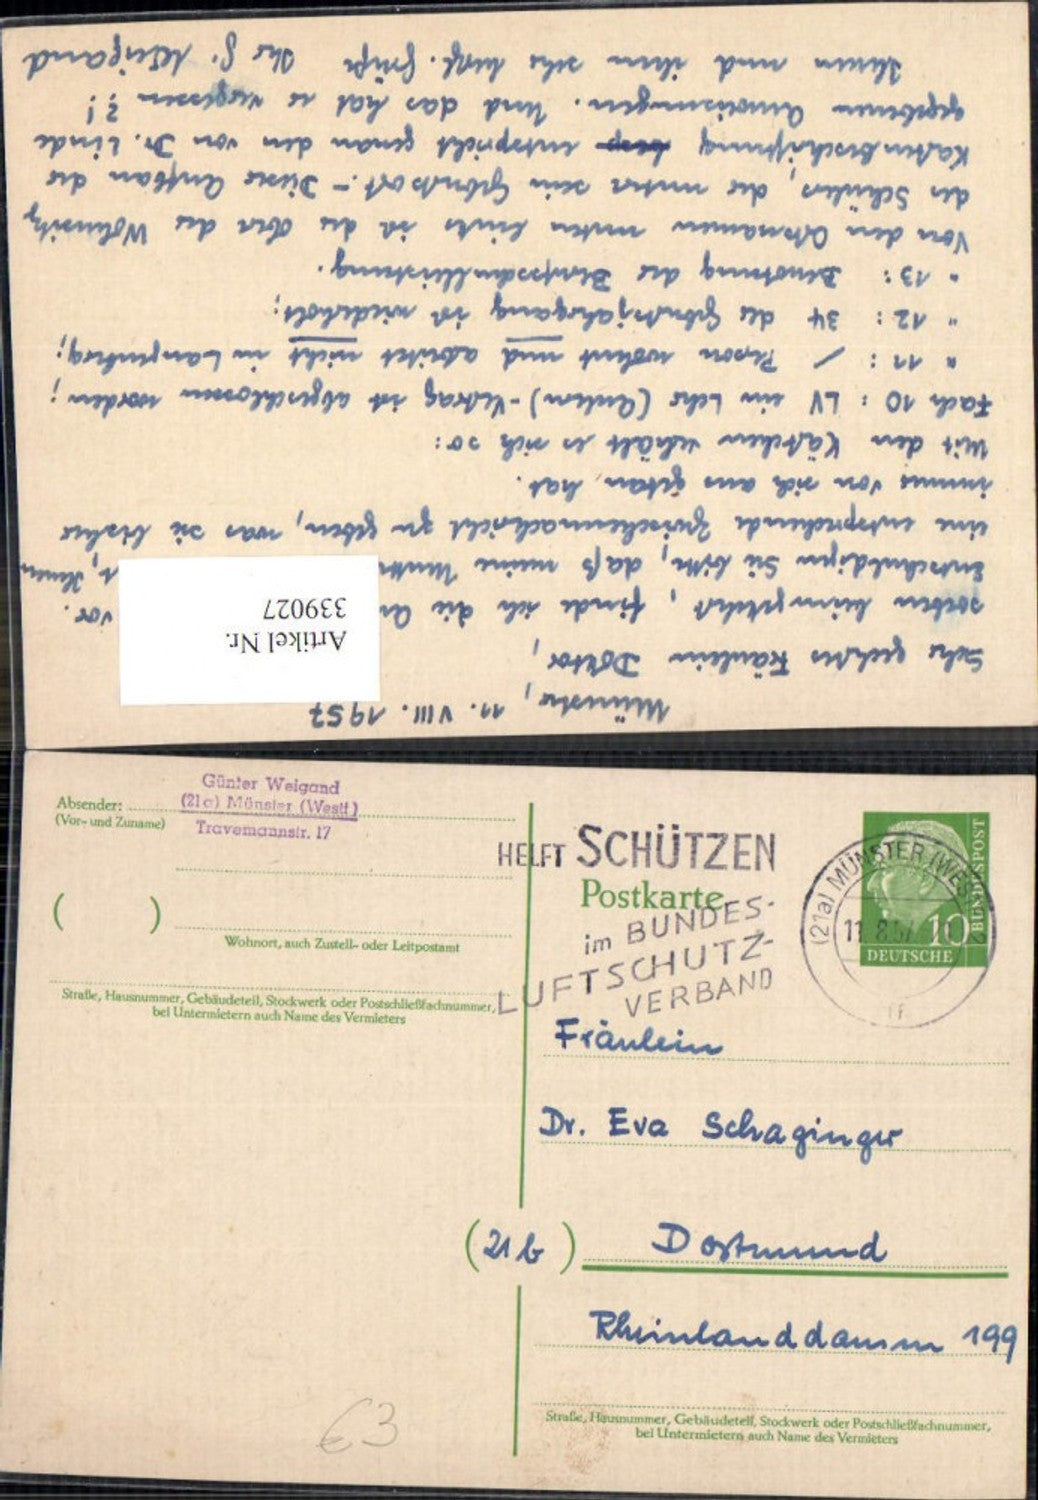 Münster, 11. VIII. 1957
Sehr geehrtes Fräulein Doktor,
soeben heimgekehrt, finde ich die vor.
Entschuldigen Sie bitte, daß meine Ihnen
eine entsprechende Zwischennachricht zu geben, was sie bisher
immer von sich aus getan hat.
Mit den Kästchen verhält es sich so:
Fach 10: LV ein Lehr (Anlern)-Vertrag ist abgeschlossen worden;
" 11: / Person wohnt und arbeitet nicht in Langenberg;
" 12: 34 der Geburtsjahrgang ist wiederholt;
" 13: Benotung der Berufsschulleistung.
Von den Ortsnamen unten links ist der obere der Wohnsitz
des Schülers, der untere sein Geburtsort. - Dieser Aufbau der
Kastenbeschriftung entspricht genau den von Dr. Linde
gegebenen Anweisungen. Und das hat er vergessen?!
Ihnen und ihm sehr herzl. Grüße Ihr G. Weigand
Artikel Nr.
339027
Absender:
(Vor- und Zuname)
Günter Weigand
(21a) Münster (Westf)
Travemannstr. 17
( )
Wohnort, auch Zustell- oder Leitpostamt
Straße, Hausnummer, Gebäudeteil, Stockwerk oder Postschließfachnummer,
bei Untermietern auch Name des Vermieters
HELFT SCHÜTZEN
im BUNDES-
LUFTSCHUTZ-
VERBAND
Postkarte
(21a) MÜNSTER (WES
11.8.57
10
DEUTSCHE
BUNDESPOST
Fräulein
Dr. Eva Schaginger
(21b) Dortmund
Rheinlanddamm 199
Straße, Hausnummer, Gebäudeteil, Stockwerk oder Postschließfachnummer,
bei Untermietern auch Name des Vermieters
€3